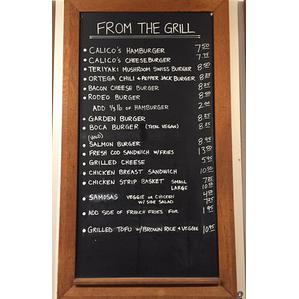 FROM THE GRILL
• CALICO'S HAMBURGER 7.50
• CALICO'S CHEESEBURGER 7.75
• TERIYAKI MUSHROOM SWISS BURGER 8.95
• ORTEGA CHILI + PEPPER JACK BURGER 8.95
• BACON CHEESE BURGER 8.95
• RODEO BURGER 8.95
ADD ½ lb OF HAMBURGER
• GARDEN BURGER
• BOCA BURGER (100% VEGAN)
• SALMON BURGER 8.95
• FRESH COD SANDWICH W/FRIES
• GRILLED CHEESE 5.95
• CHICKEN BREAST SANDWICH
• CHICKEN STRIP BASKET SMALL
LARGE
• SAMOSAS VEGGIE OR CHICKEN
W/ SIDE SALAD
• ADD SIDE OF FRENCH FRIES FOR 1.95
• GRILLED TOFU W/BROWN RICE + VEGGIE 10.95